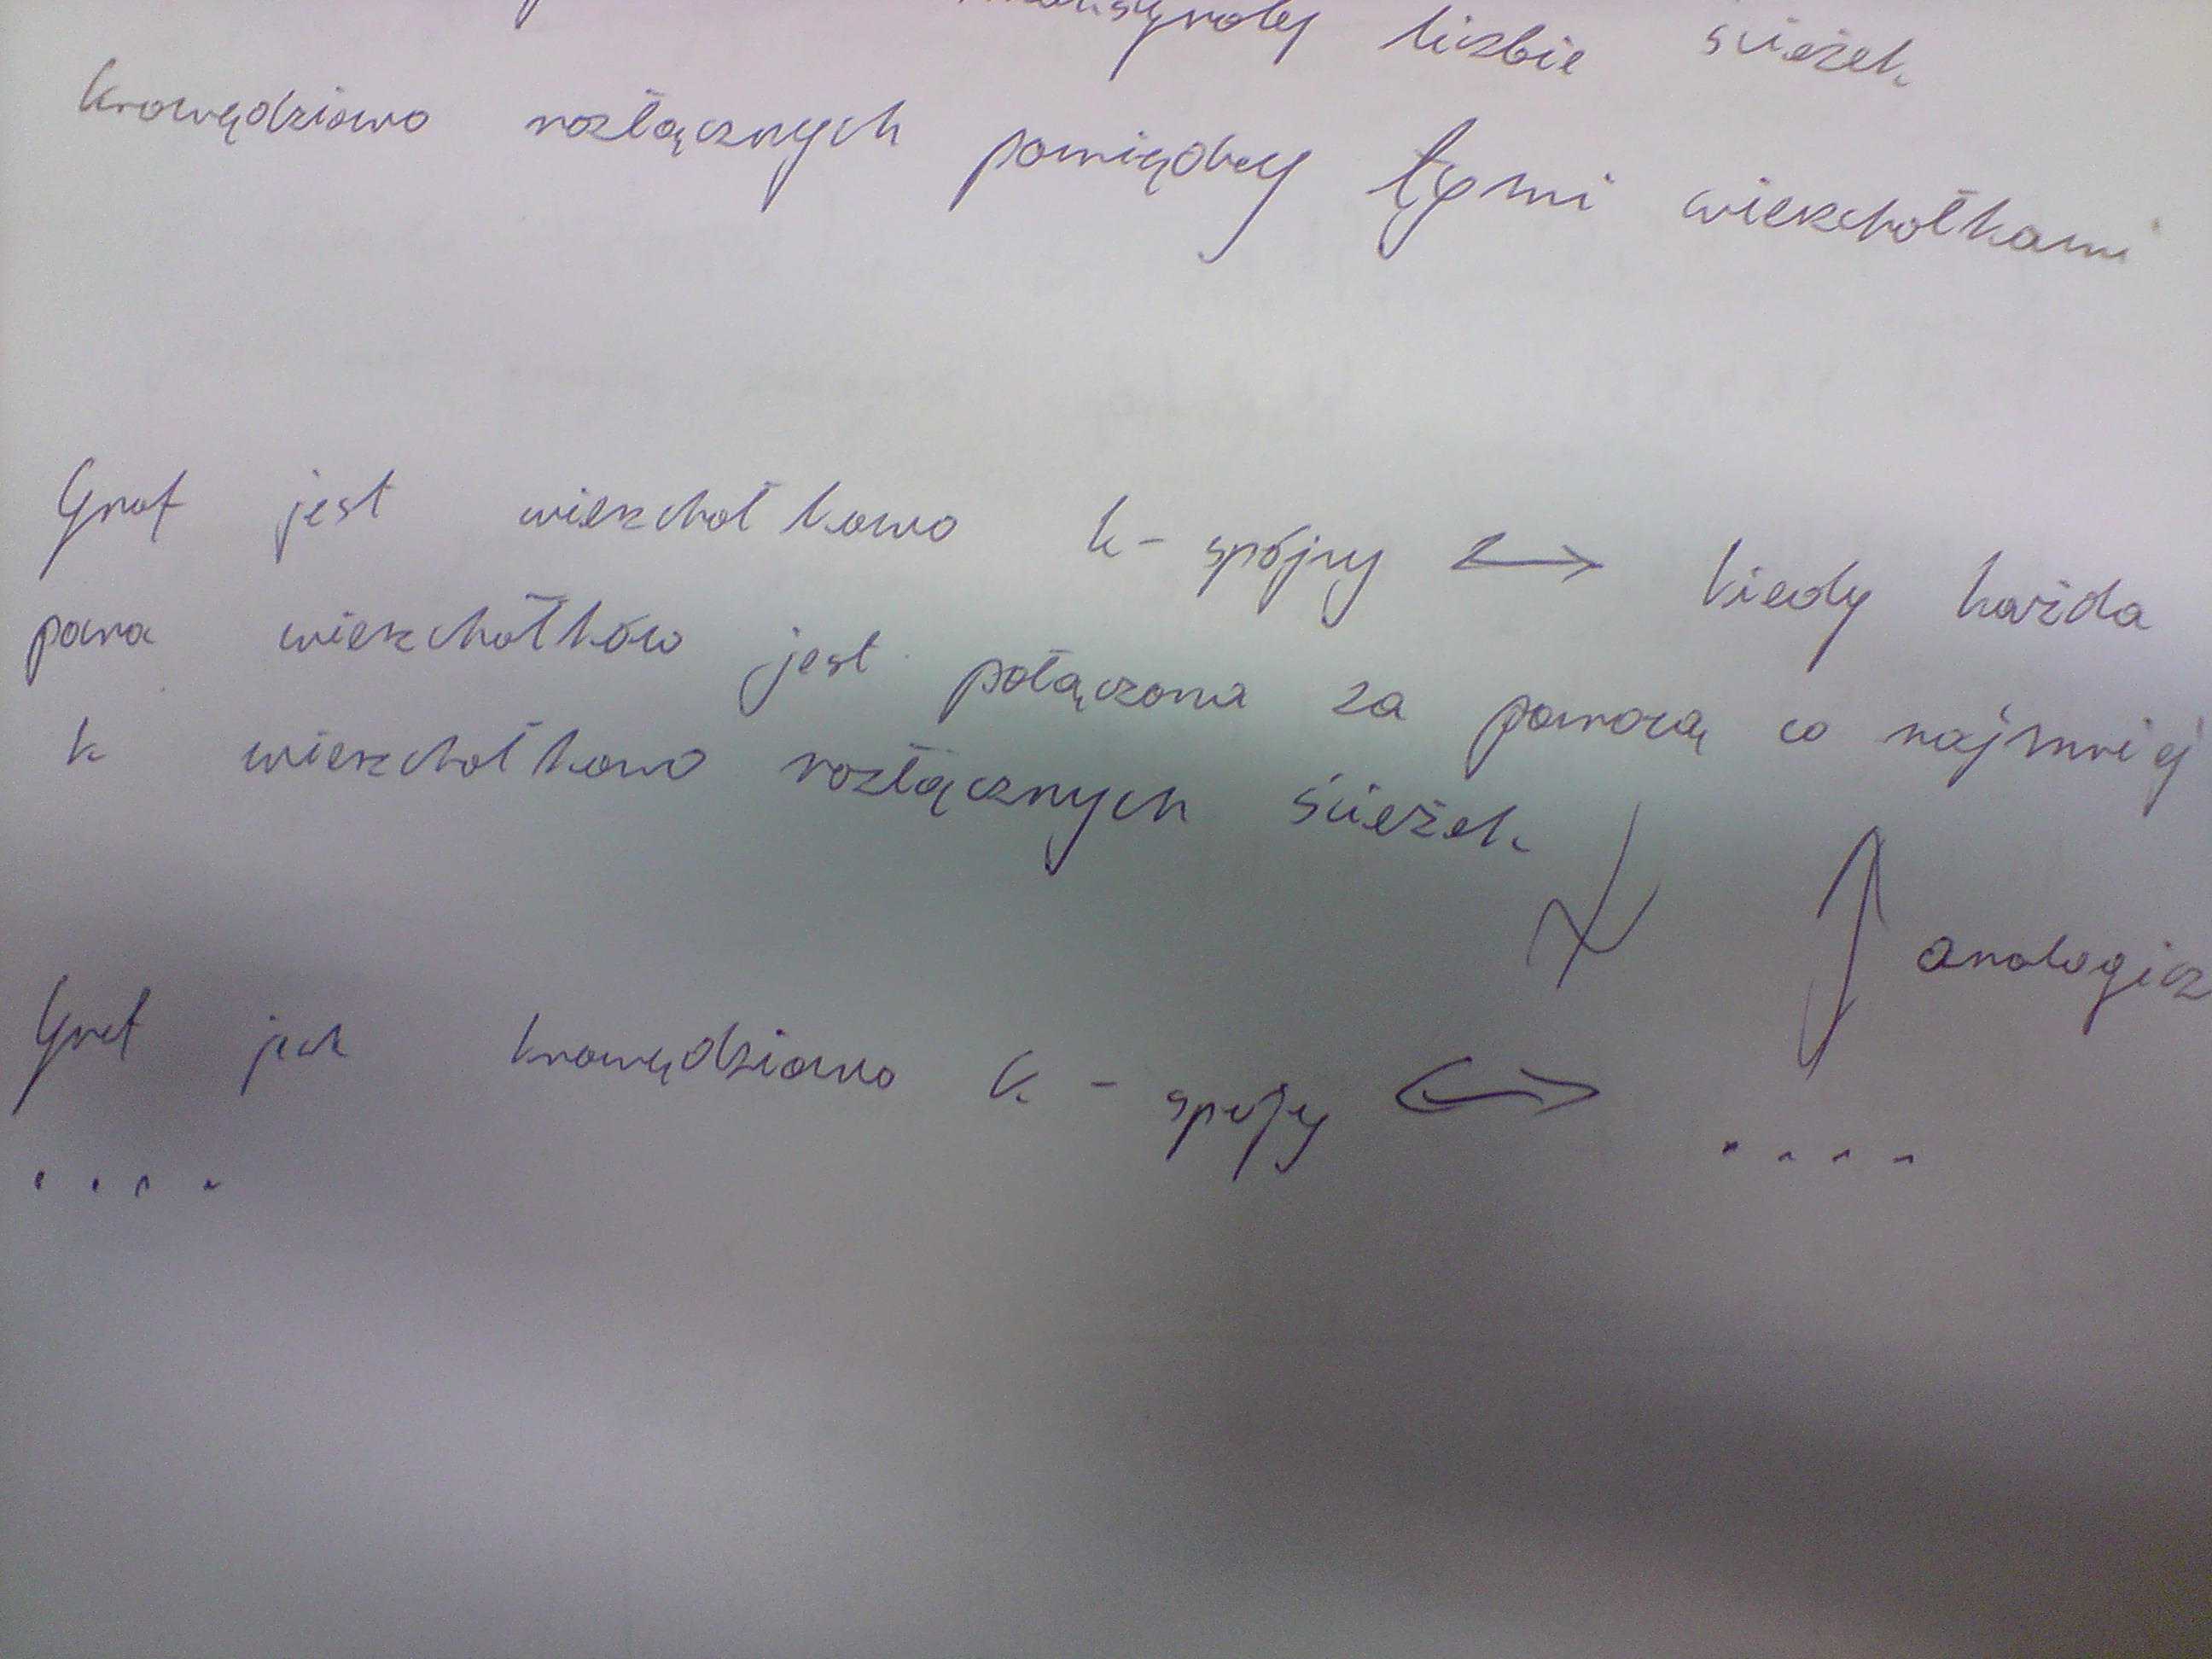 liczbie ścieżek
krawędziowo rozłącznych pomiędzy tymi wierzchołkami
Graf jest wierzchołkowo k-spójny ↔ kiedy każda
para wierzchołków jest połączona za pomocą co najmniej
k wierzchołkowo rozłącznych ścieżek
analogicz
Graf jest krawędziowo k - spójny ⟺ ....
....